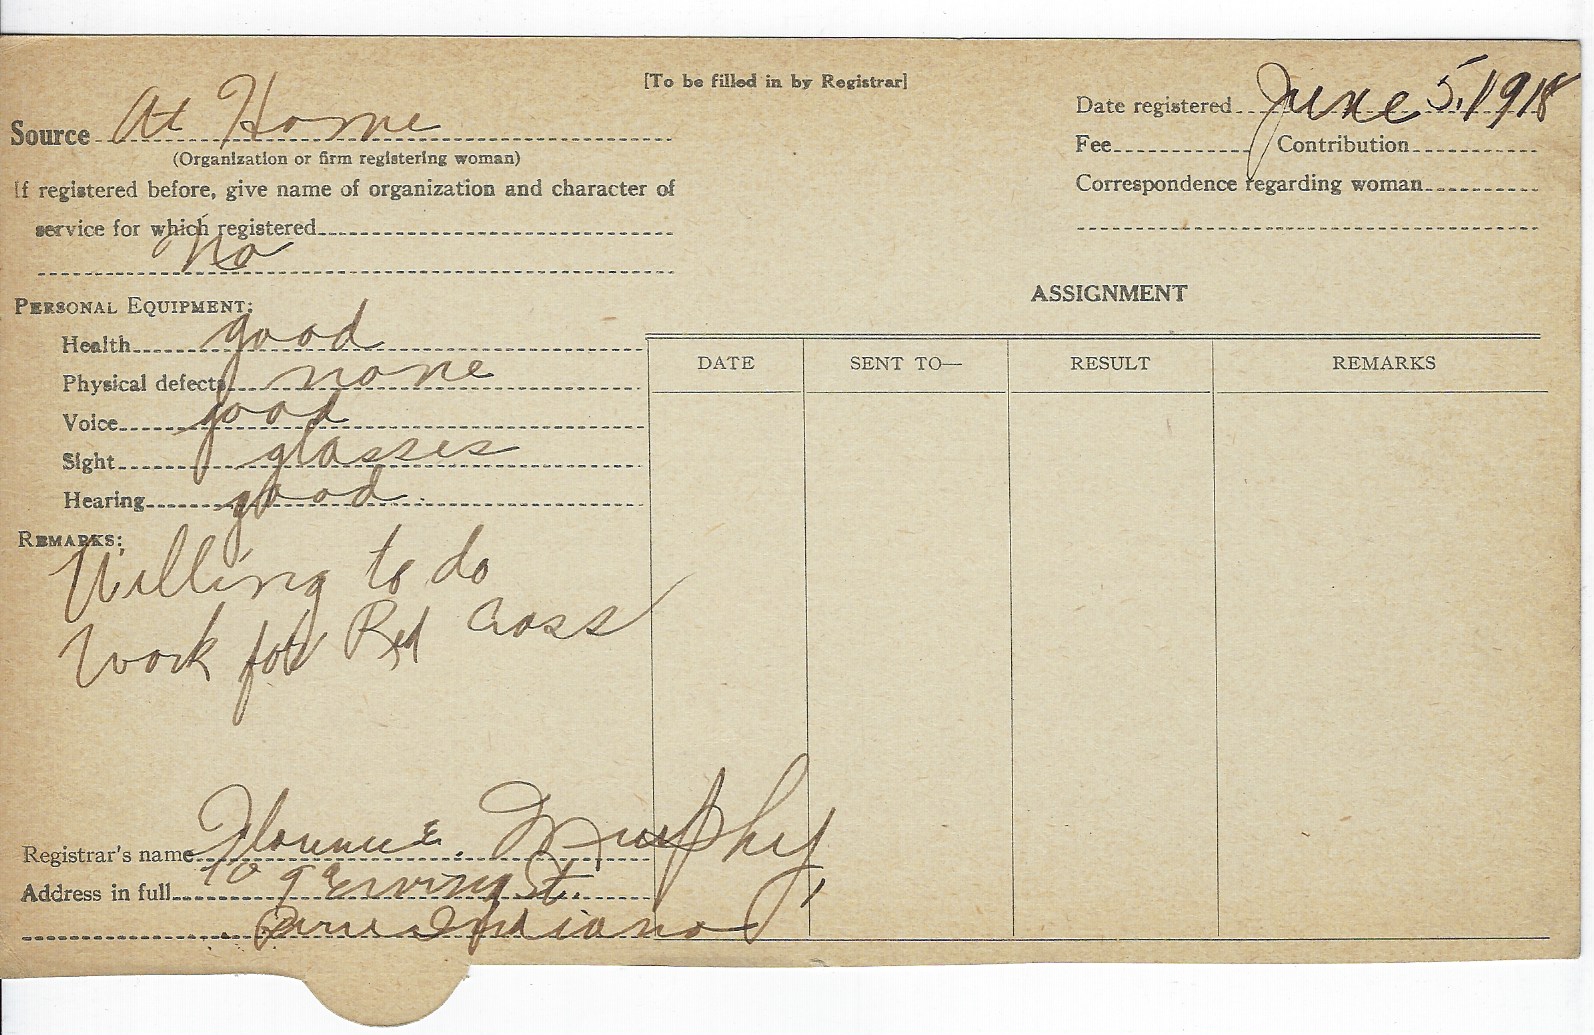 [To be filled in by Registrar]
Source At Home
(Organization or firm registering woman)
If registered before, give name of organization and character of
service for which registered
No
Date registered June 5, 1918
Fee Contribution
Correspondence regarding woman
PERSONAL EQUIPMENT:
Health good
Physical defects none
Voice good
Sight glasses
Hearing good
REMARKS:
Willing to do
Work for Red Cross
ASSIGNMENT
DATE SENT TO— RESULT REMARKS
Registrar's name Florence Murphy,
Address in full St.
Peru Indiana